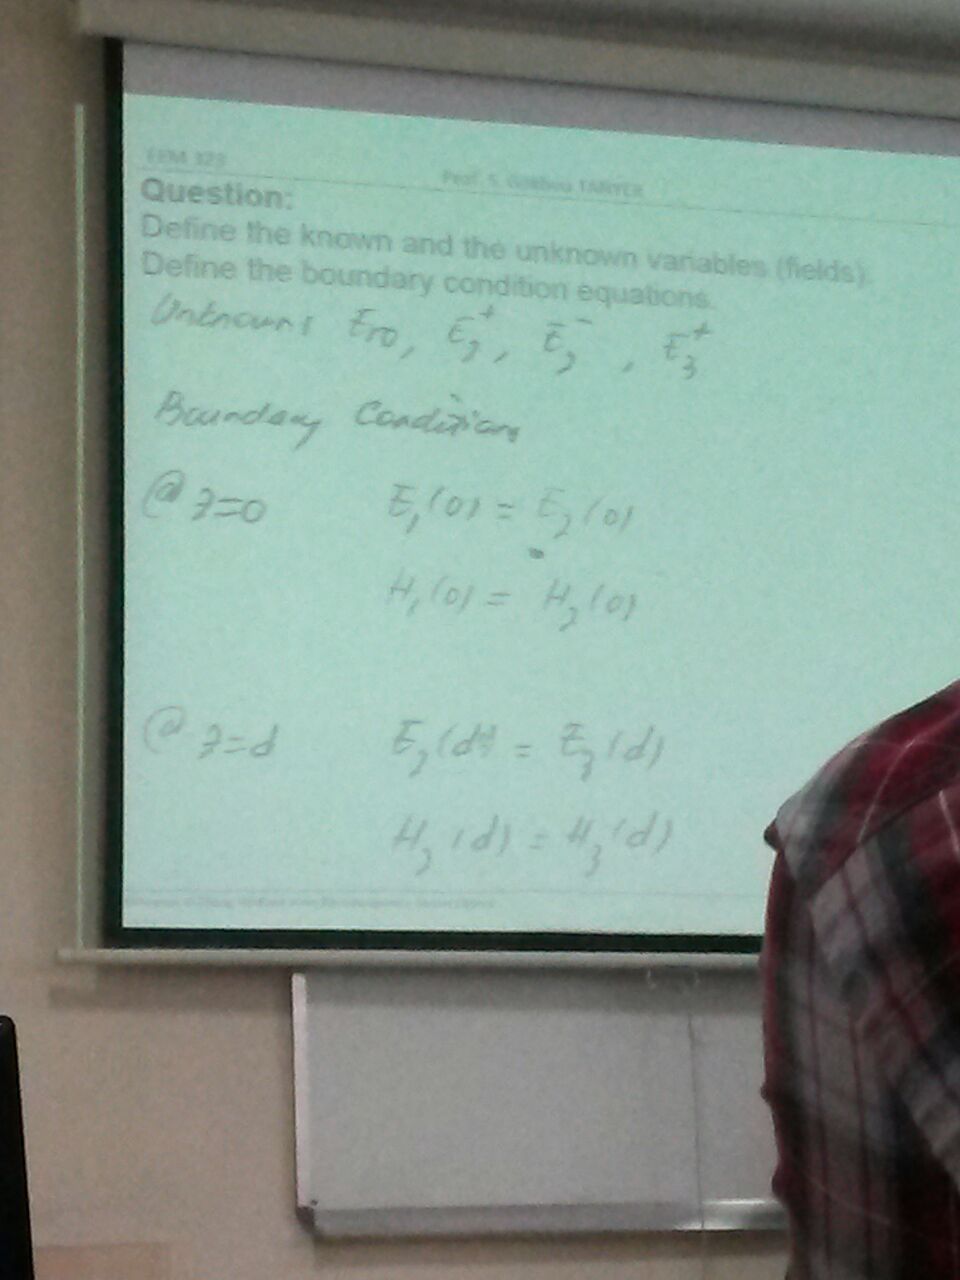 EEM 323
Prof. S. TANYER
Question:
Define the known and the unknown variables (fields).
Define the boundary condition equations.
Unknowns Er0, E2+, E2-, E3+
Boundary Conditions
@ z=0 E1(0) = E2(0)
H1(0) = H2(0)
@ z=d E2(d) = E3(d)
H2(d) = H3(d)